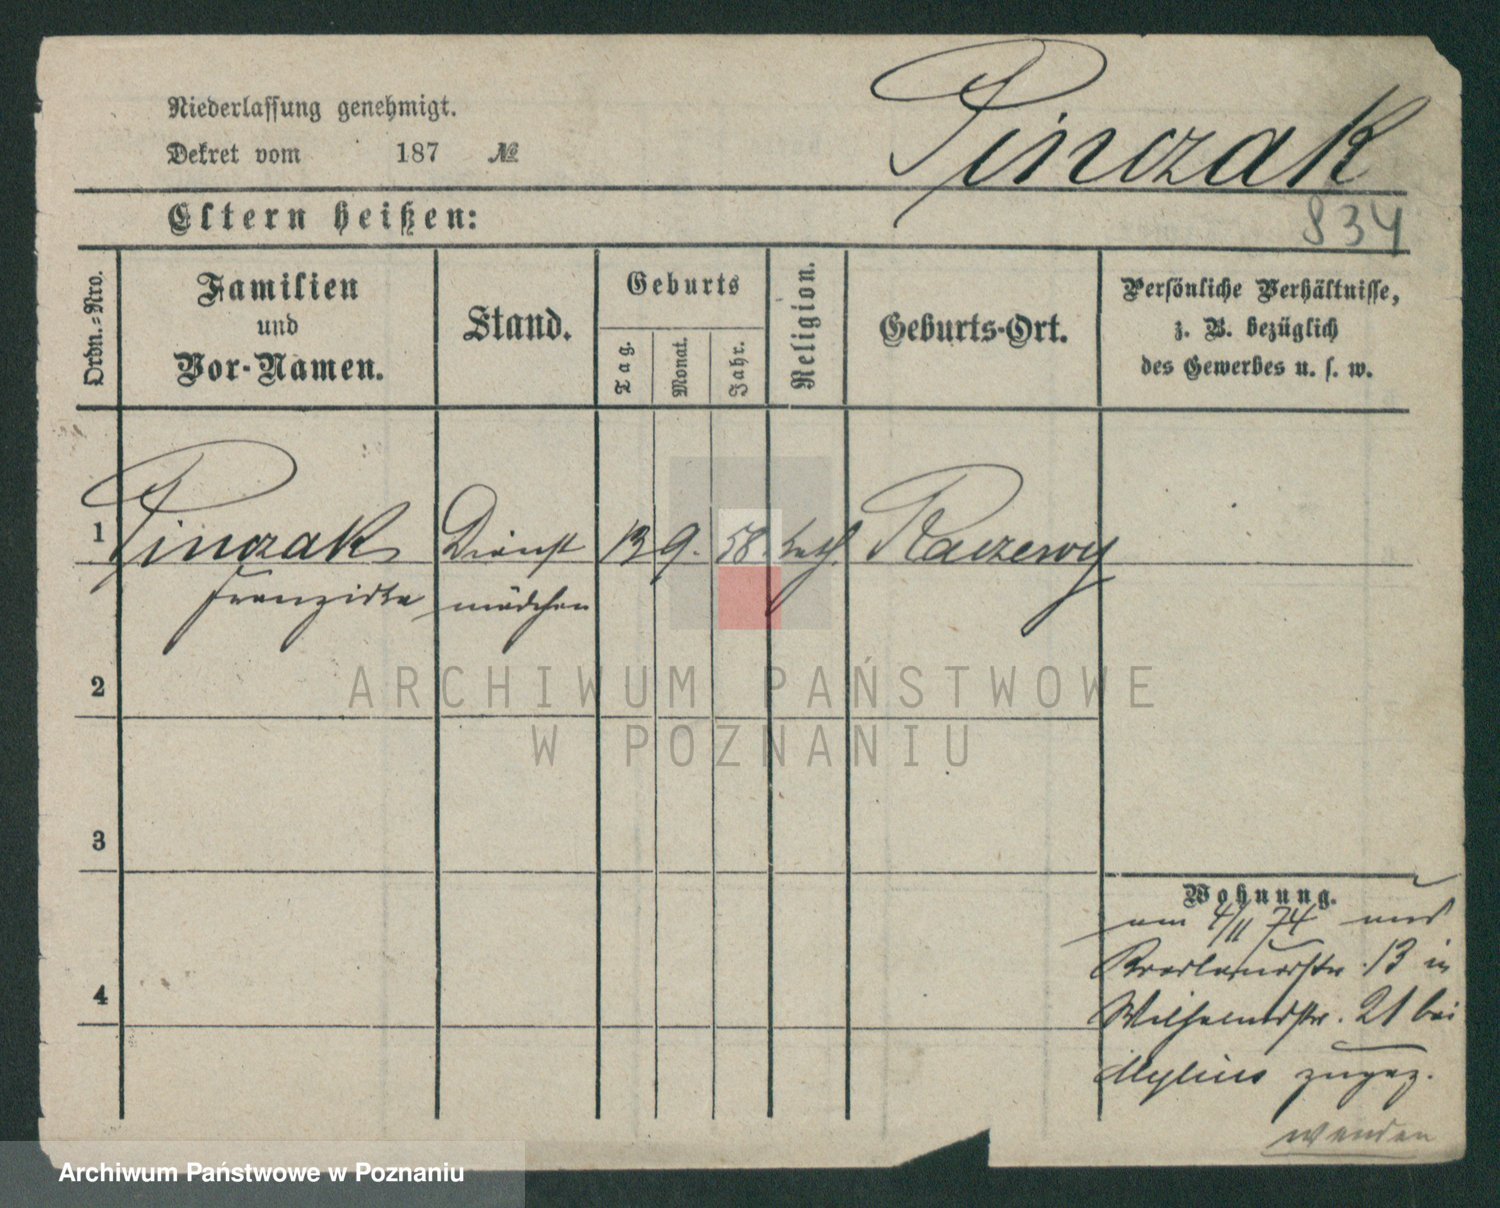 Pinczak
Niederlassung genehmigt.
Dekret vom 187 №
834
Eltern heißen:
Ordn.=Nro.
Familien
und
Vor-Namen.
Stand.
Geburts
Tag.
Monat.
Jahr.
Religion.
Geburts-Ort.
Persönliche Verhältnisse,
z. B. bezüglich
des Gewerbes u. s. w.
1 Pinczak Dienst 13 9. 58. kath. Raczewy
Franziska mädchen
2
3
4
Wohnung.
am 4/11 74 aus
Breslauerstr. 13 in
Wilhelmstr. 21 bei
Mylius zugez.
wenden
ARCHIWUM PAŃSTWOWE
W POZNANIU
Archiwum Państwowe w Poznaniu